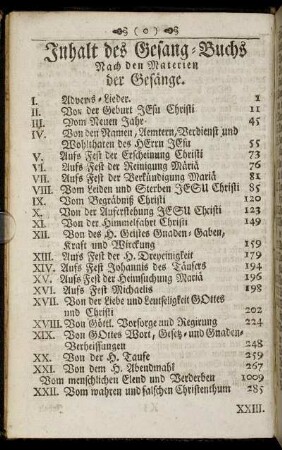 ( o )
Inhalt des Gesang-Buchs
Nach den Materien
der Gesänge.
I. Advents-Lieder. 1
II. Von der Geburt JEsu Christi 11
III. Vom Neuen Jahr- 45
IV. Von den Namen, Aemtern, Verdienst und
Wohlthaten des HErrn JEsu 55
V. Aufs Fest der Erscheinung Christi 73
VI. Aufs Fest der Reinigung Mariä 76
VII. Aufs Fest der Verkündigung Mariä 81
VIII. Vom Leiden und Sterben JESU Christi 85
IX. Vom Begräbniß Christi 120
X. Von der Auferstehung JESU Christi 123
XI. Von der Himmelfahrt Christi 149
XII. Von des H. Geistes Gnaden-Gaben,
Kraft und Wirckung 159
XIII. Aufs Fest der H. Dreyeinigkeit 179
XIV. Aufs Fest Johannis des Täufers 194
XV. Aufs Fest der Heimsuchung Mariä 196
XVI. Aufs Fest Michaelis 198
XVII. Von der Liebe und Leutseligkeit GOttes
und Christi 202
XVIII. Von Göttl. Vorsorge und Regirung 224
XIX. Von GOttes Wort, Gesetz- und Gnaden-
Verheissungen 248
XX. Von der H. Taufe 259
XXI. Von dem H. Abendmahl 267
Vom menschlichen Elend und Verderben 1009
XXII. Vom wahren und falschen Christenthum 285
XXIII.